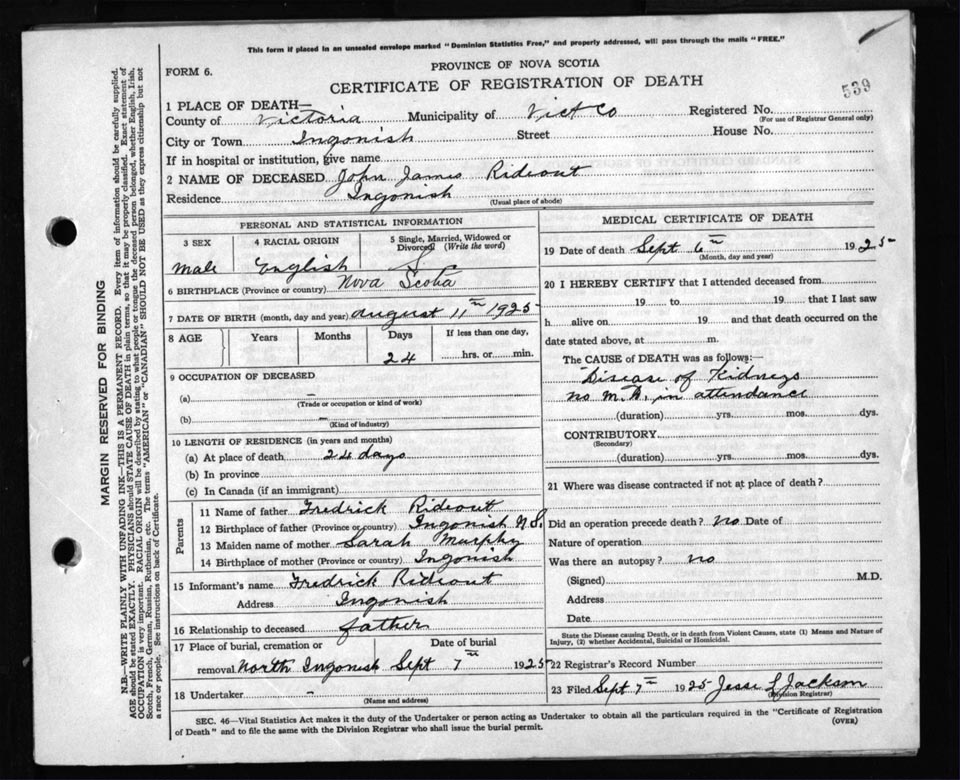 This form if placed in an unsealed envelope marked "Dominion Statistics Free," and properly addressed, will pass through the mails "FREE."
FORM 6.
PROVINCE OF NOVA SCOTIA
CERTIFICATE OF REGISTRATION OF DEATH
539
1 PLACE OF DEATH—
County of Victoria Municipality of Vict Co Registered No.
(For use of Registrar General only)
City or Town Ingonish Street House No.
If in hospital or institution, give name
2 NAME OF DECEASED John James Rideout
Residence Ingonish
(Usual place of abode)
PERSONAL AND STATISTICAL INFORMATION
3 SEX 4 RACIAL ORIGIN 5 Single, Married, Widowed or Divorced (Write the word)
Male English S
6 BIRTHPLACE (Province or country) Nova Scotia
7 DATE OF BIRTH (month, day and year) August 11th 1925
8 AGE Years Months Days If less than one day,
24 hrs. or min.
9 OCCUPATION OF DECEASED
(a) –
(Trade or occupation or kind of work)
(b) –
(Kind of industry)
10 LENGTH OF RESIDENCE (in years and months)
(a) At place of death 24 days
(b) In province
(c) In Canada (if an immigrant)
Parents
11 Name of father Fredrick Rideout
12 Birthplace of father (Province or country) Ingonish N.S.
13 Maiden name of mother Sarah Murphy
14 Birthplace of mother (Province or country) Ingonish
15 Informant's name Fredrick Rideout
Address Ingonish
16 Relationship to deceased father
17 Place of burial, cremation or Date of burial
removal North Ingonish Sept 7th 1925
18 Undertaker –
(Name and address)
MEDICAL CERTIFICATE OF DEATH
19 Date of death Sept 6th 1925
(Month, day and year)
20 I HEREBY CERTIFY that I attended deceased from
19 to 19 that I last saw
h alive on 19 and that death occurred on the
date stated above, at m.
The CAUSE of DEATH was as follows:—
Disease of Kidneys
no M.D. in attendance
(duration) yrs. mos. dys.
CONTRIBUTORY
(Secondary)
(duration) yrs. mos. dys.
21 Where was disease contracted if not at place of death?
Did an operation precede death? no Date of
Nature of operation
Was there an autopsy? no
(Signed) M.D.
Address
Date
State the Disease causing Death, or in death from Violent Causes, state (1) Means and Nature of
Injury, (2) whether Accidental, Suicidal or Homicidal.
22 Registrar's Record Number
23 Filed Sept 7th 1925 Jesse L Jackson
(Division Registrar)
SEC. 46—Vital Statistics Act makes it the duty of the Undertaker or person acting as Undertaker to obtain all the particulars required in the "Certificate of Registration
of Death" and to file the same with the Division Registrar who shall issue the burial permit.
(OVER)
MARGIN RESERVED FOR BINDING
N.B.—WRITE PLAINLY WITH UNFADING INK—THIS IS A PERMANENT RECORD. Every item of information should be carefully supplied.
AGE should be stated EXACTLY. PHYSICIANS should STATE CAUSE OF DEATH in plain terms, so that it may be properly classified. Exact statement of
OCCUPATION is very important. RACIAL ORIGIN will be described by stating to what people or tongue the deceased person belonged, whether English, Irish,
Scotch, French, German, Russian, Ruthenian, etc. The terms "AMERICAN" or "CANADIAN" SHOULD NOT BE USED as they express citizenship but not
a race or people. See instructions on back of Certificate.